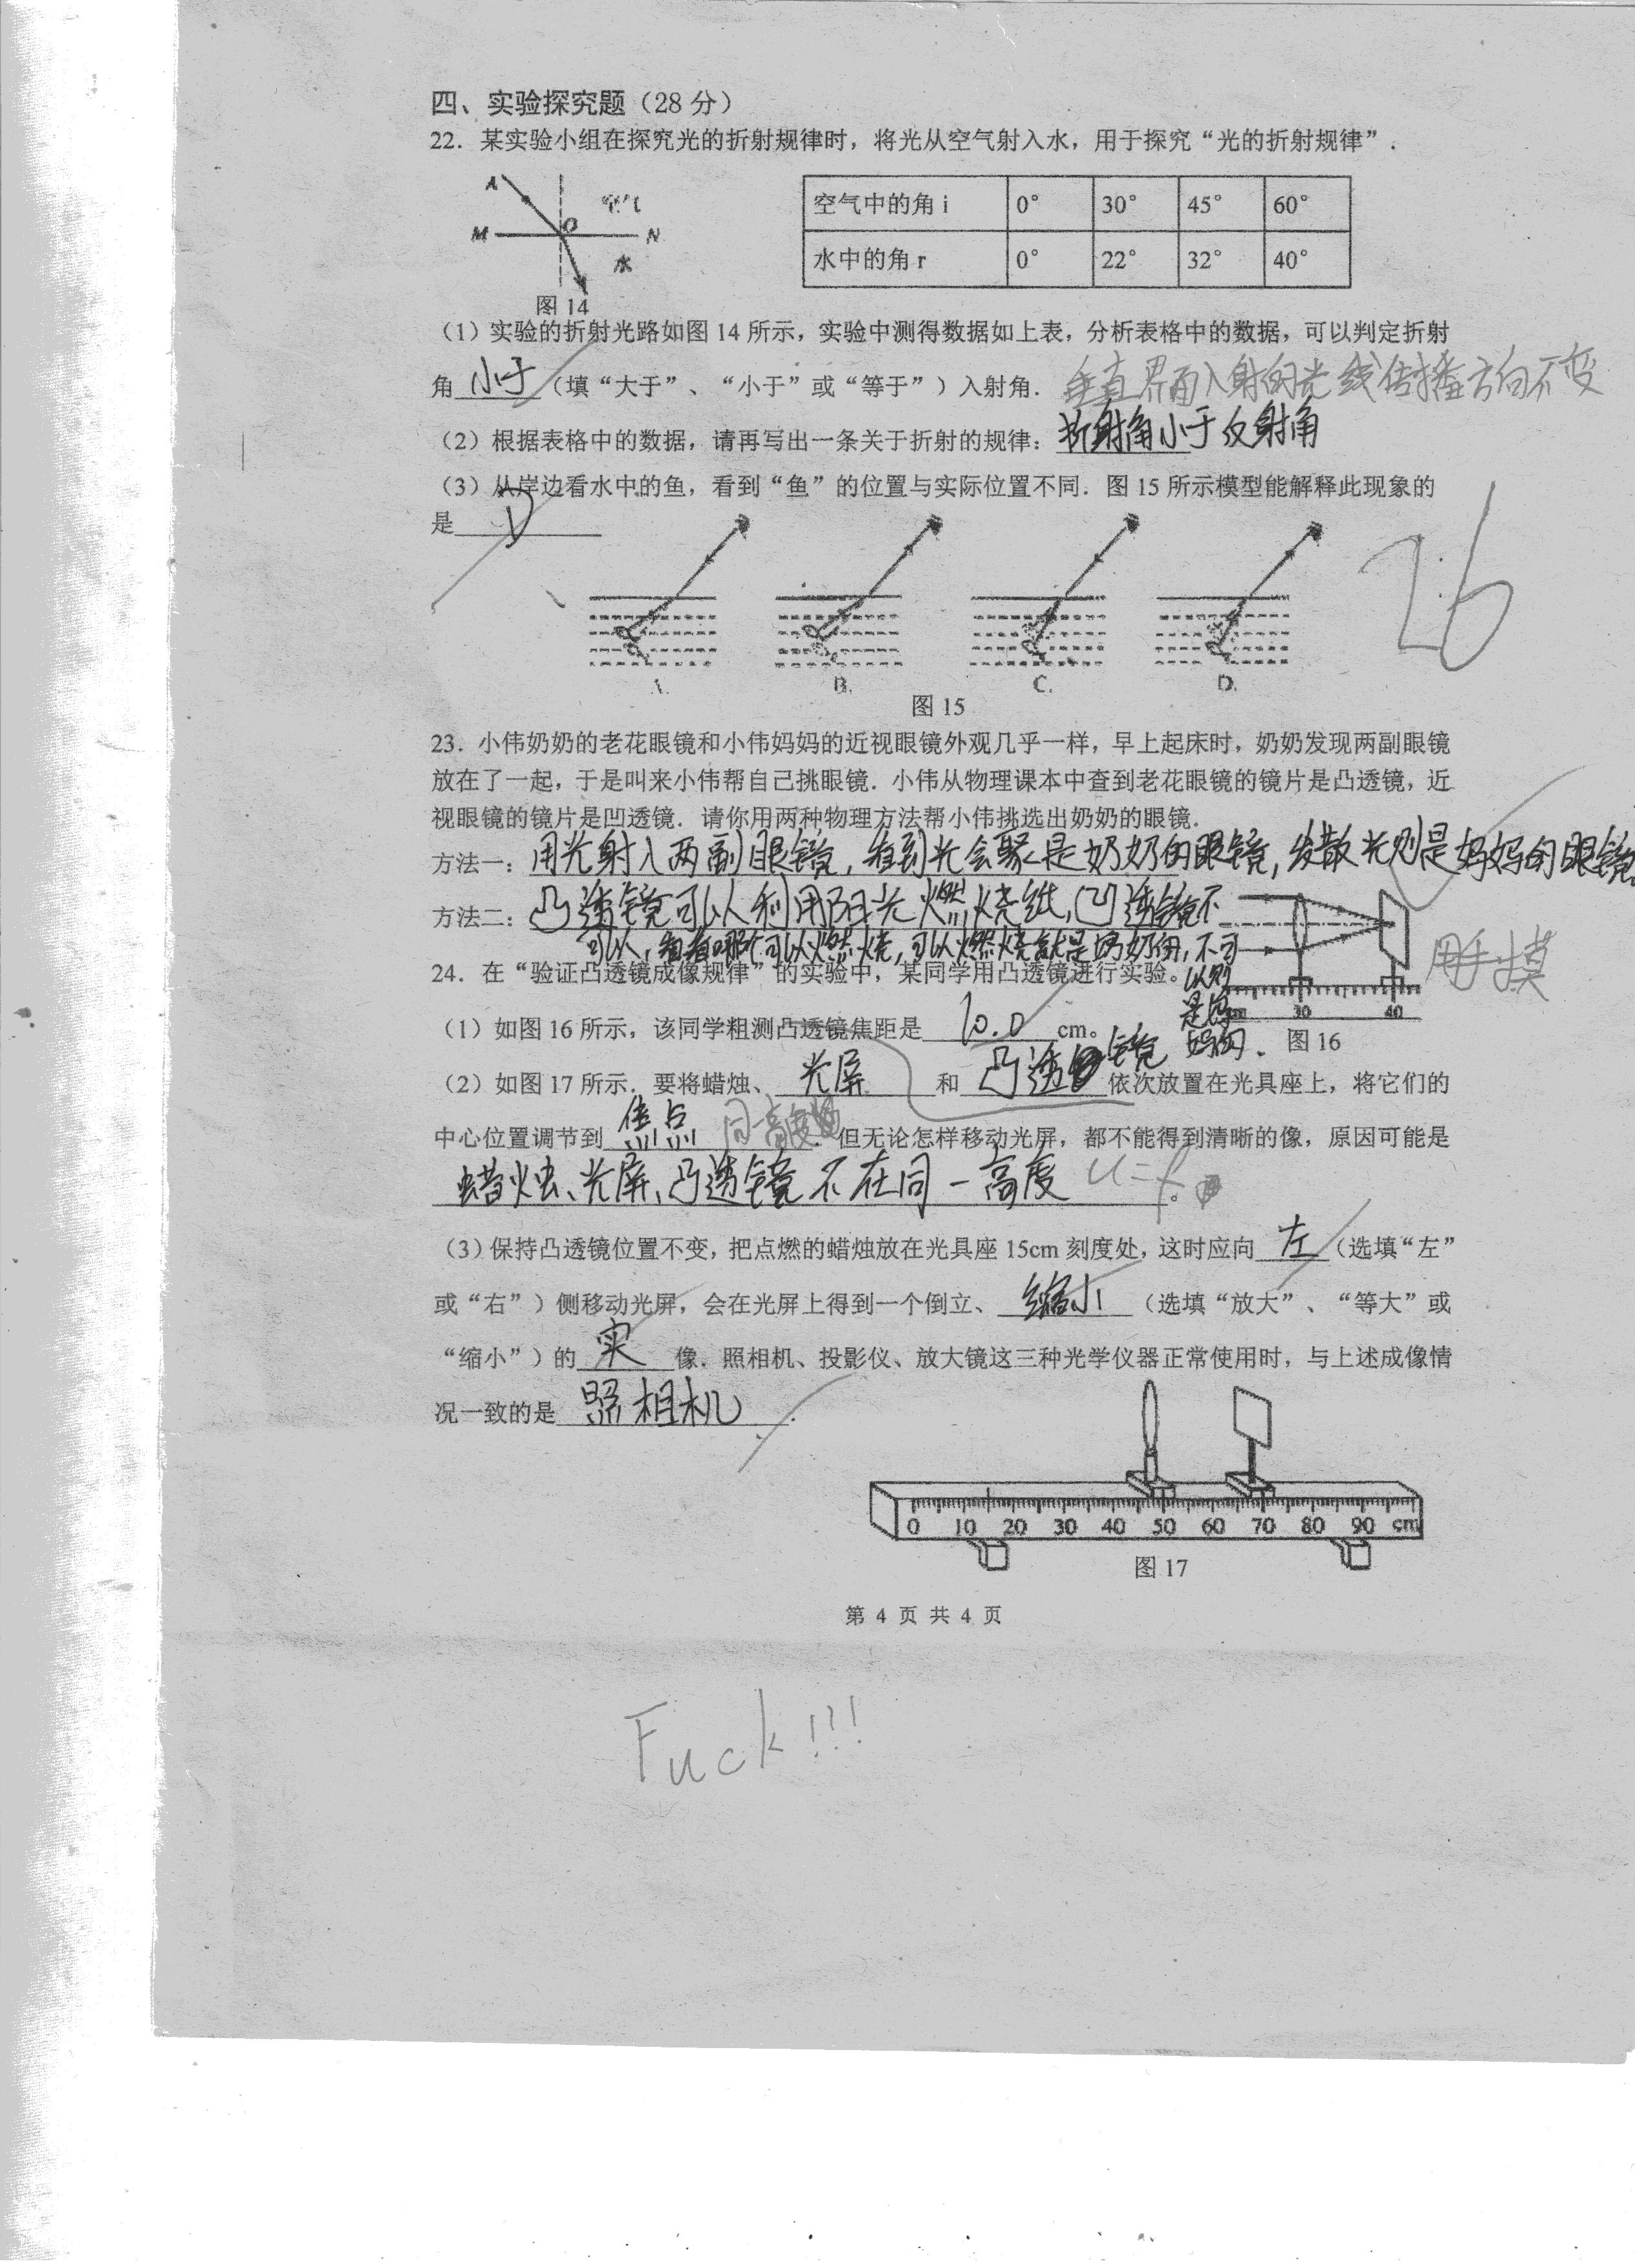 四、实验探究题（28 分）
22．某实验小组在探究光的折射规律时，将光从空气射入水，用于探究“光的折射规律”．
A
空气
O
M
N
水
图 14
空气中的角 i 0° 30° 45° 60°
水中的角 r 0° 22° 32° 40°
（1）实验的折射光路如图 14 所示，实验中测得数据如上表，分析表格中的数据，可以判定折射
角 小于 （填“大于”、“小于”或“等于”）入射角．
垂直界面入射的光线传播方向不变
（2）根据表格中的数据，请再写出一条关于折射的规律：折射角小于反射角
（3）从岸边看水中的鱼，看到“鱼”的位置与实际位置不同．图 15 所示模型能解释此现象的
是 D
26
A. B. C. D.
图 15
23．小伟奶奶的老花眼镜和小伟妈妈的近视眼镜外观几乎一样，早上起床时，奶奶发现两副眼镜
放在了一起，于是叫来小伟帮自己挑眼镜．小伟从物理课本中查到老花眼镜的镜片是凸透镜，近
视眼镜的镜片是凹透镜．请你用两种物理方法帮小伟挑选出奶奶的眼镜．
方法一：用光射入两副眼镜，看到光会聚是奶奶的眼镜，发散光则是妈妈的眼镜。
方法二：凸透镜可以利用阳光燃烧纸，凹透镜不
可以，看看哪个可以燃烧，可以燃烧就是奶奶的，不可
以则
是妈
妈的．
用手摸
24．在“验证凸透镜成像规律”的实验中，某同学用凸透镜进行实验。
cm 30 40
图 16
（1）如图 16 所示，该同学粗测凸透镜焦距是 10.0 cm。
（2）如图 17 所示．要将蜡烛、 光屏 和 凸透镜 依次放置在光具座上，将它们的
中心位置调节到 焦点 同一高度 ．但无论怎样移动光屏，都不能得到清晰的像，原因可能是
蜡烛、光屏、凸透镜不在同一高度 u=f 。
（3）保持凸透镜位置不变，把点燃的蜡烛放在光具座 15cm 刻度处，这时应向 左 （选填“左”
或“右”）侧移动光屏，会在光屏上得到一个倒立、 缩小 （选填“放大”、“等大”或
“缩小”）的 实 像．照相机、投影仪、放大镜这三种光学仪器正常使用时，与上述成像情
况一致的是 照相机 ．
0 10 20 30 40 50 60 70 80 90 cm
图 17
第 4 页 共 4 页
Fuck!!!